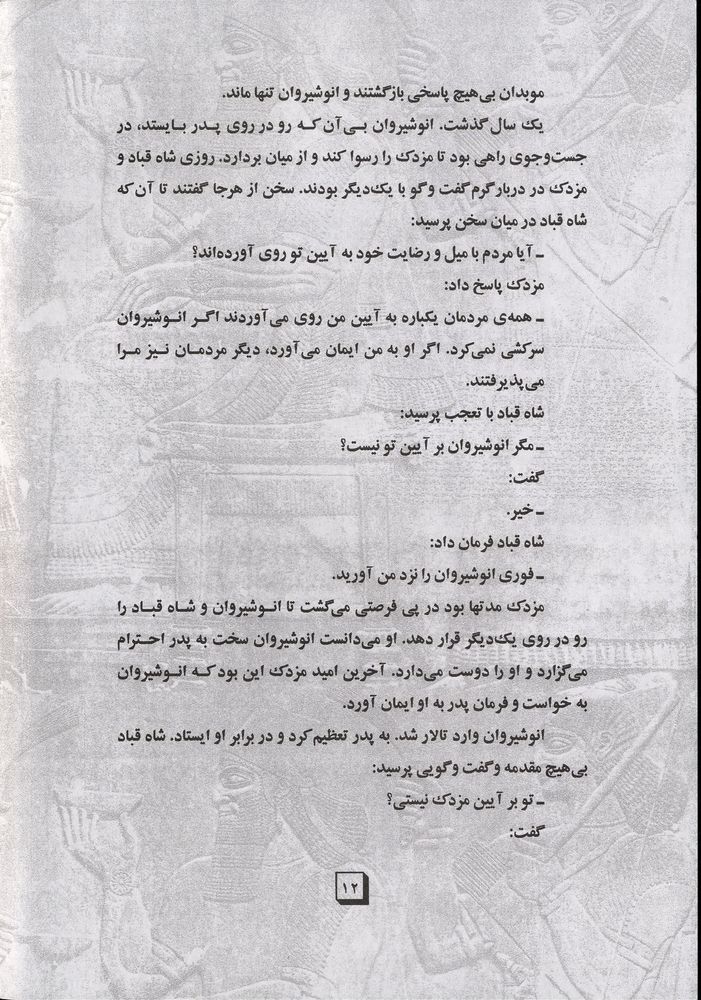 موبدان بی‌هیچ پاسخی بازگشتند و انوشیروان تنها ماند.
یک سال گذشت. انوشیروان بی‌آن که رو در روی پدر بایستد، در
جست‌وجوی راهی بود تا مزدک را رسوا کند و از میان بردارد. روزی شاه قباد و
مزدک در دربار گرم گفت وگو با یک‌دیگر بودند. سخن از هرجا گفتند تا آن که
شاه قباد در میان سخن پرسید:
ـ آیا مردم با میل و رضایت خود به آیین تو روی آورده‌اند؟
مزدک پاسخ داد:
ـ همه‌ی مردمان یکباره به آیین من روی می‌آوردند اگر انوشیروان
سرکشی نمی‌کرد. اگر او به من ایمان می‌آورد، دیگر مردمان نیز مرا
می‌پذیرفتند.
شاه قباد با تعجب پرسید:
ـ مگر انوشیروان بر آیین تو نیست؟
گفت:
ـ خیر.
شاه قباد فرمان داد:
ـ فوری انوشیروان را نزد من آورید.
مزدک مدتها بود در پی فرصتی می‌گشت تا انوشیروان و شاه قباد را
رو در روی یک‌دیگر قرار دهد. او می‌دانست انوشیروان سخت به پدر احترام
می‌گزارد و او را دوست می‌دارد. آخرین امید مزدک این بود که انوشیروان
به خواست و فرمان پدر به او ایمان آورد.
انوشیروان وارد تالار شد. به پدر تعظیم کرد و در برابر او ایستاد. شاه قباد
بی‌هیچ مقدمه و گفت وگویی پرسید:
ـ تو بر آیین مزدک نیستی؟
گفت:
۱۲